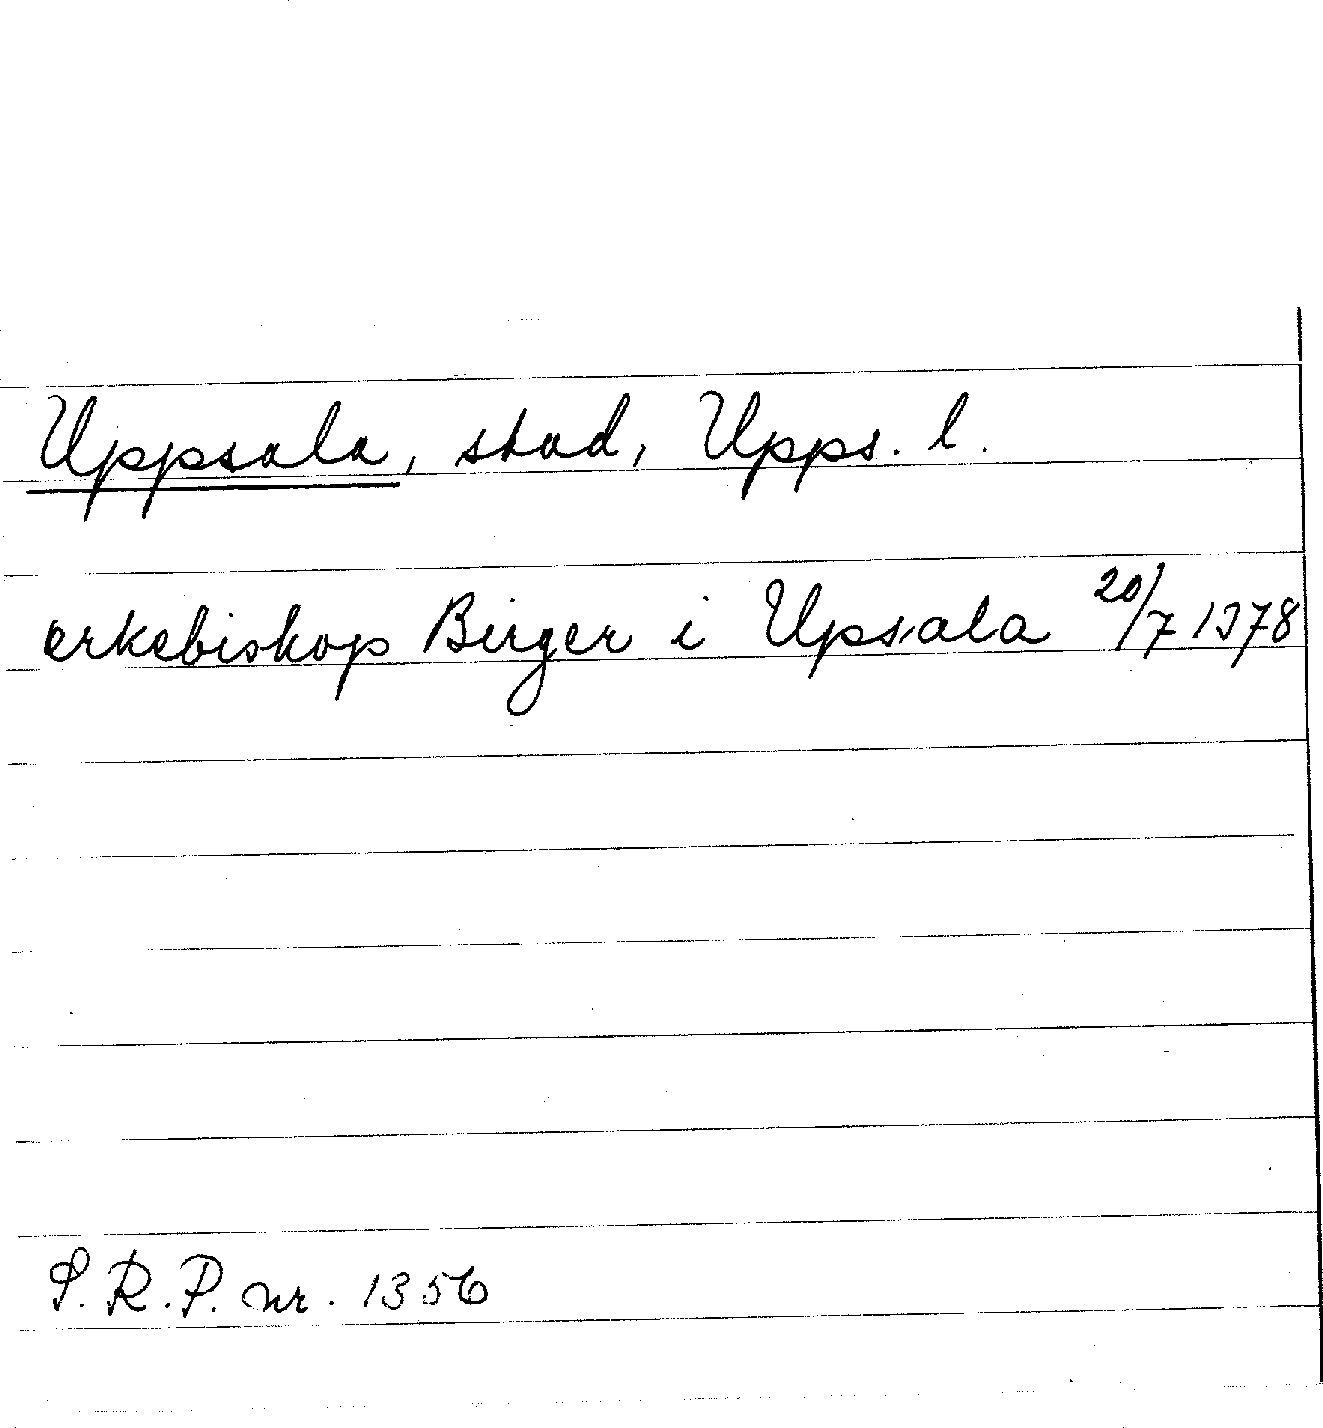 Uppsala, stad, Upps. l.
erkebiskop Birger i Upsala 20/7 1378
S. R. P. nr. 1356